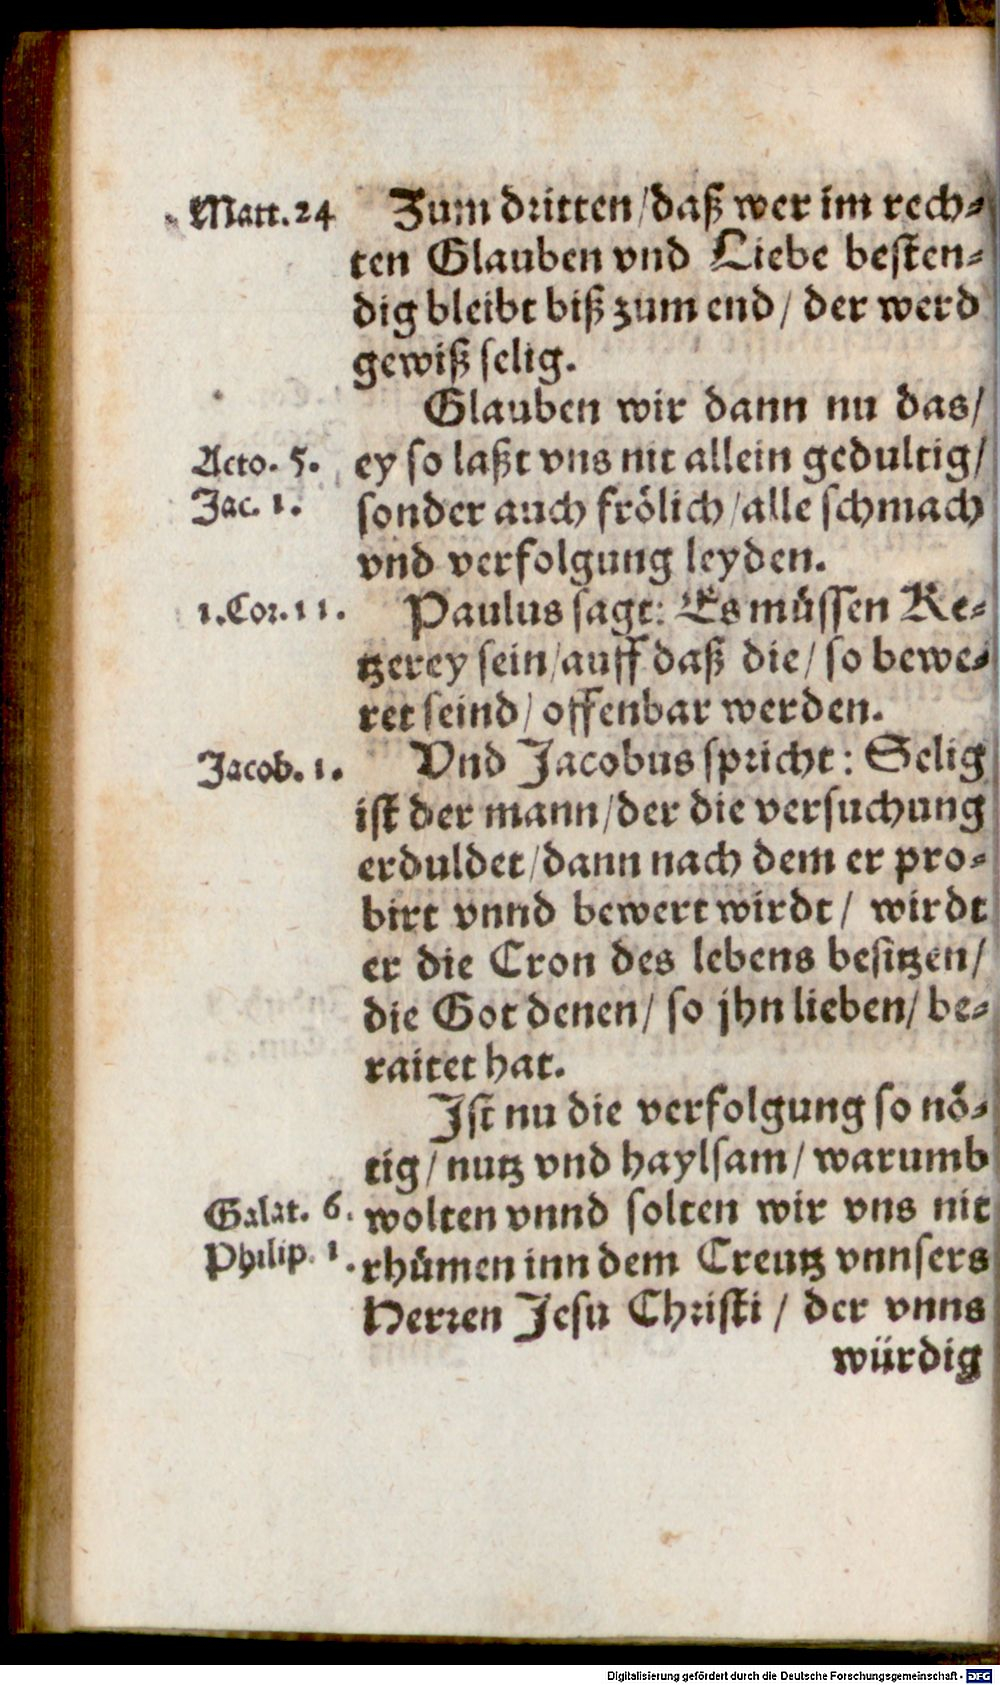 Matt. 24
Zum dritten/daß wer im rech-
ten Glauben vnd Liebe besten-
dig bleibt biß zum end/ der werd
gewiß selig.
Glauben wir dann nu das/
Acto. 5.
ey so laßt vns nit allein gedultig/
Jac. 1.
sonder auch frölich/alle schmach
vnd verfolgung leyden.
1.Cor.11.
Paulus sagt: Es müssen Ke-
tzerey sein/auff daß die/ so bewe-
ret seind/ offenbar werden.
Jacob. 1.
Vnd Jacobus spricht: Selig
ist der mann/der die versuchung
erduldet/dann nach dem er pro-
birt vnnd bewert wirdt/ wirdt
er die Cron des lebens besitzen/
die Got denen/ so jhn lieben/ be-
raitet hat.
Jst nu die verfolgung so nö-
tig/ nutz vnd haylsam/ warumb
Galat. 6.
wolten vnnd solten wir vns nit
Philip. 1.
rhümen inn dem Creutz vnnsers
Herren Jesu Christi / der vnns
würdig
Digitalisierung gefördert durch die Deutsche Forschungsgemeinschaft - DFG